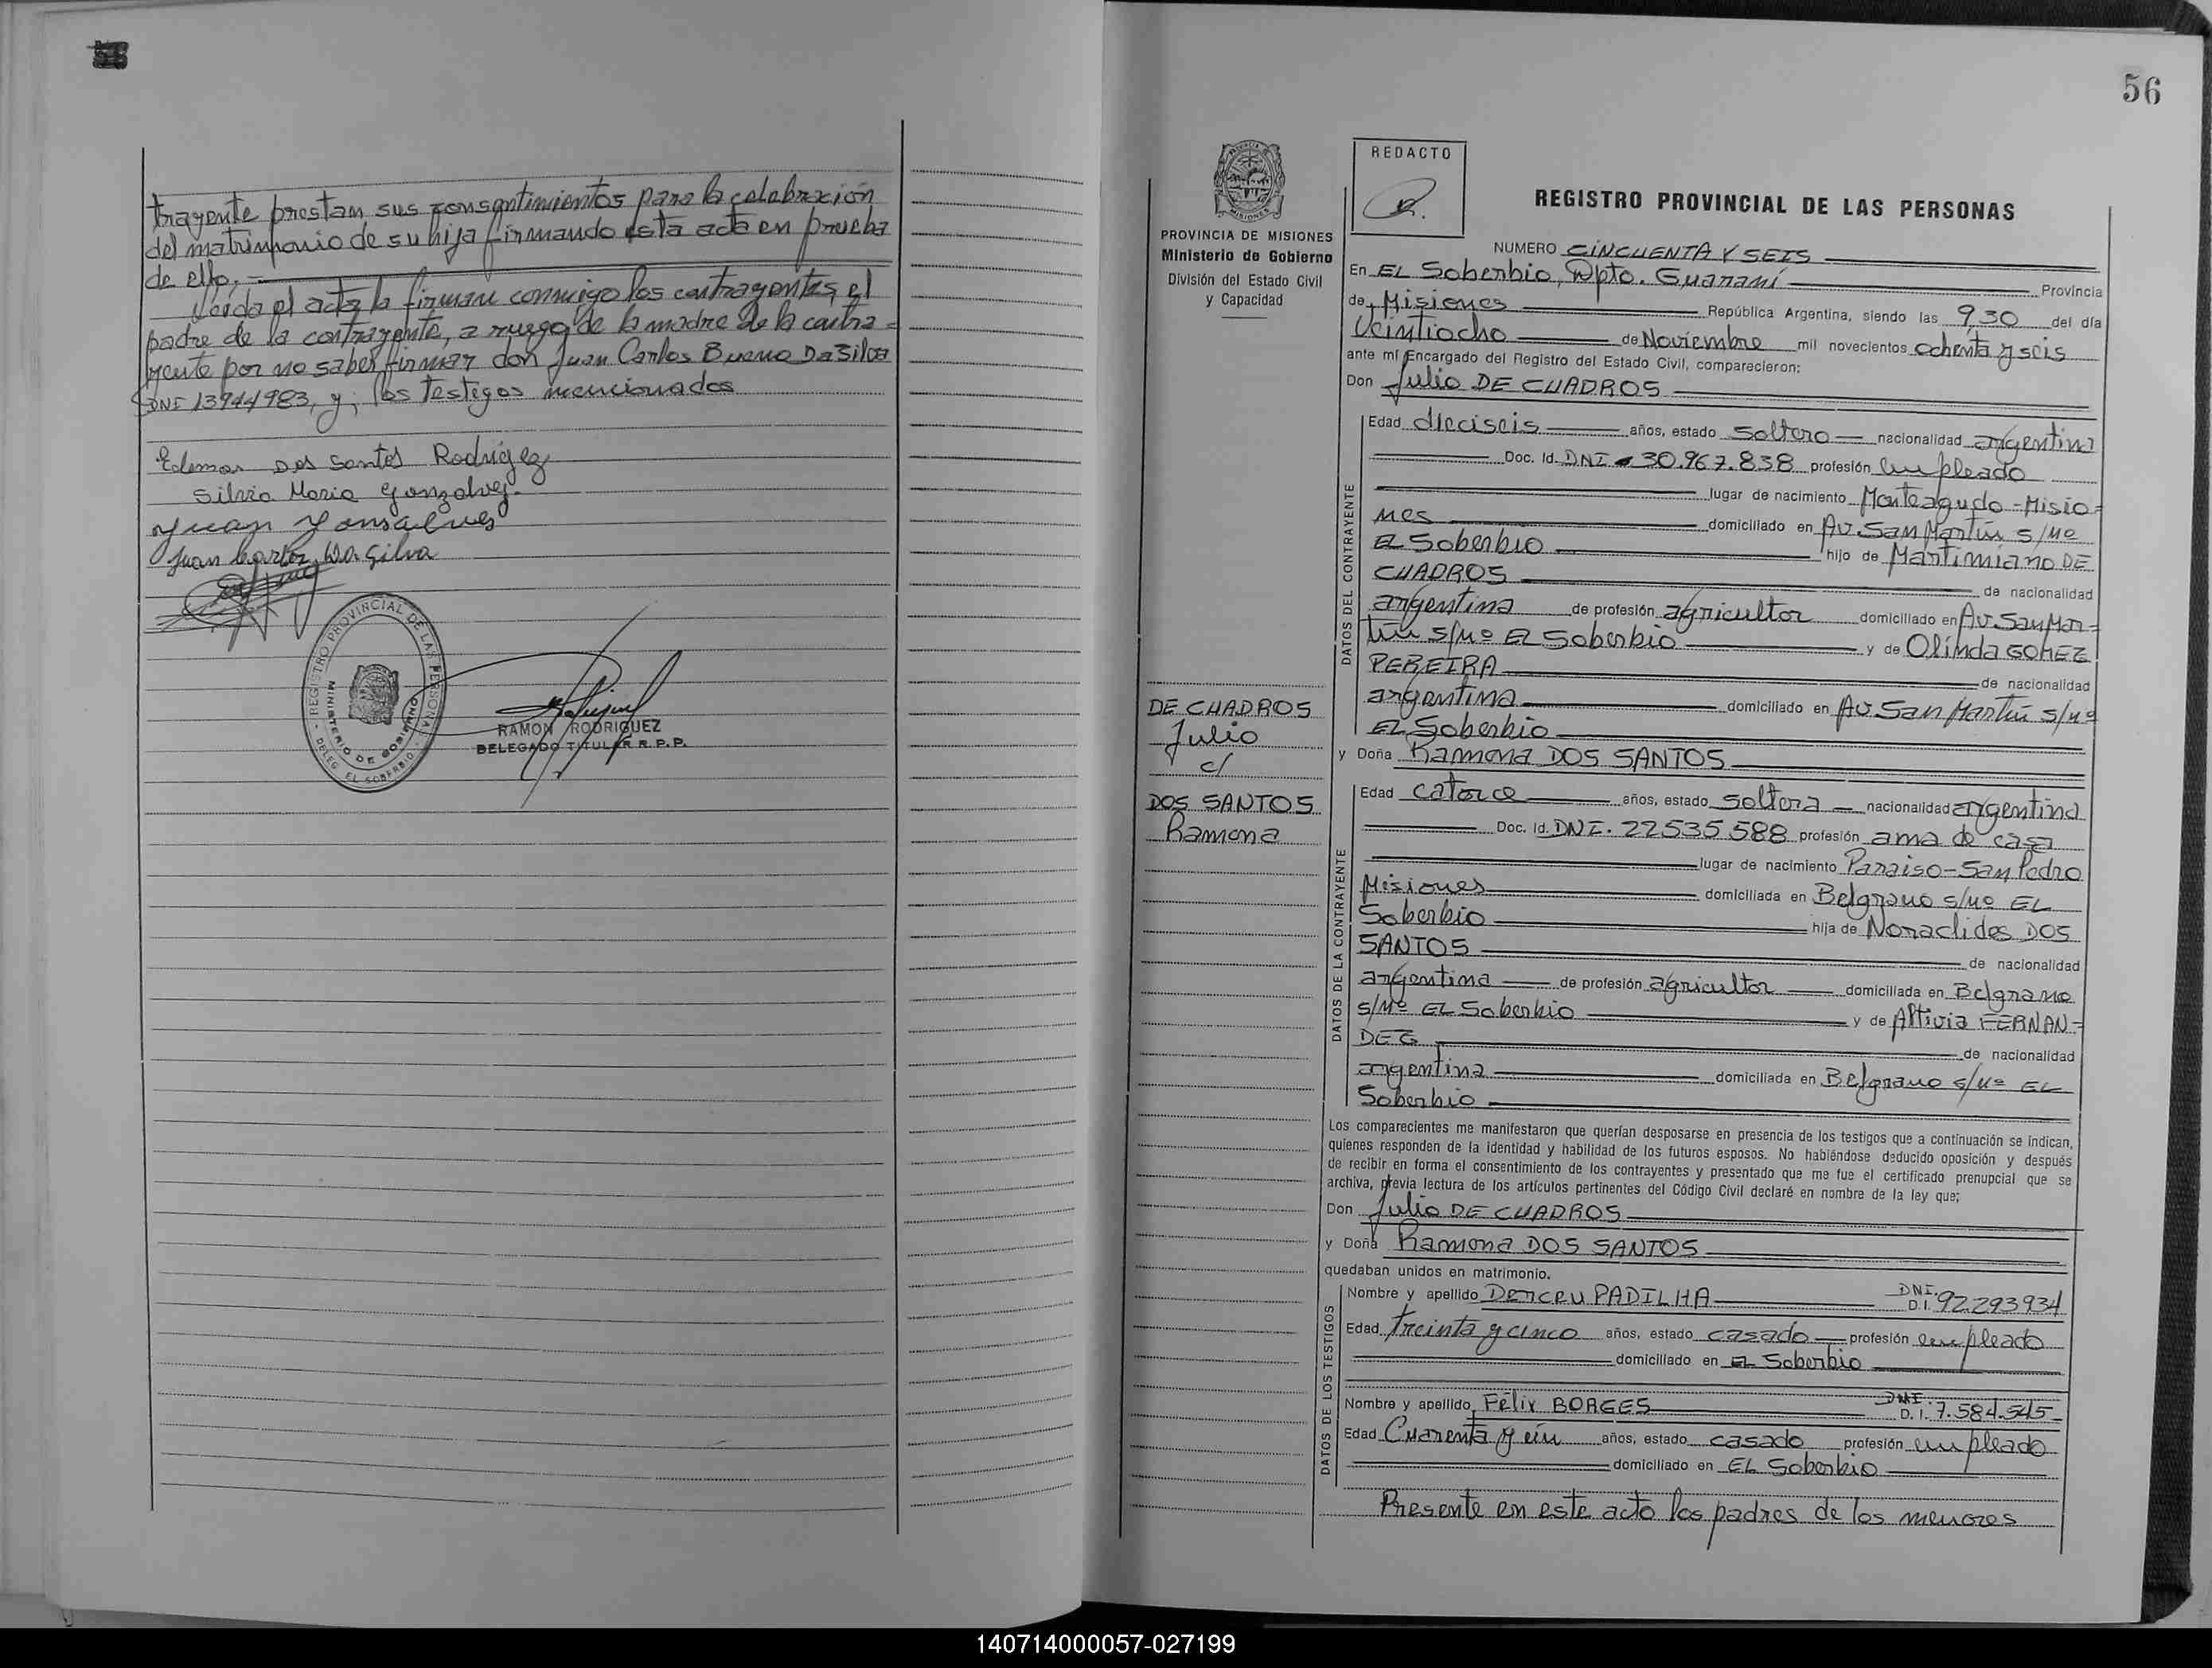 trayente prestan sus consentimientos para la celebración
del matrimonio de su hija firmando esta acta en prueba
de ello.
Leida el acta la firman conmigo los contrayentes, el
padre de la contrayente, a ruego de la madre de la contra-
yente por no saber firmar don Juan Carlos Bueno DaSilva
DNI 13944983, y, los testigos mencionados
Edemar Dos Santos Rodrigez
Silvia Maria Gonzalvez
Juan Gonsalves
Juan Carlos Da Silva
REGISTRO PROVINCIAL DE LAS PERSONAS
MINISTERIO DE GOBIERNO
DELEG. EL SOBERBIO
RAMON RODRIGUEZ
DELEGADO TITULAR R. P. P.
56
REDACTO
MISIONES
PROVINCIA DE MISIONES
Ministerio de Gobierno
División del Estado Civil
y Capacidad
DE CUADROS
Julio
c/
DOS SANTOS
Ramona
REGISTRO PROVINCIAL DE LAS PERSONAS
NUMERO CINCUENTA Y SEIS
En EL Soberbio, Dpto. Guaraní Provincia
de Misiones República Argentina, siendo las 9,30 del día
Veintiocho de Noviembre mil novecientos ochenta y seis
ante mí Encargado del Registro del Estado Civil, comparecieron:
Don Julio DE CUADROS
DATOS DEL CONTRAYENTE
Edad dieciseis años, estado soltero nacionalidad argentina
Doc. Id. DNI 30.967.838 profesión empleado
lugar de nacimiento Monteagudo - Misio-
nes domiciliado en Av. San Martín s/nº
EL Soberbio hijo de Martimiano DE
CUADROS de nacionalidad
argentina de profesión agricultor domiciliado en Av. San Mar-
tín s/nº EL Soberbio y de Olinda GOMEZ
PEREIRA de nacionalidad
argentina domiciliado en Av San Martín s/nº
EL Soberbio
y Doña Ramona DOS SANTOS
DATOS DE LA CONTRAYENTE
Edad catorce años, estado soltera nacionalidad argentina
Doc. Id. DNI. 22535.588 profesión ama de casa
lugar de nacimiento Paraiso - San Pedro
Misiones domiciliada en Belgrano s/nº EL
Soberbio hija de Noraclides DOS
SANTOS de nacionalidad
argentina de profesión agricultor domiciliada en Belgrano
s/nº EL Soberbio y de Altivia FERNAN-
DEZ de nacionalidad
argentina domiciliada en Belgrano s/nº EL
Soberbio
Los comparecientes me manifestaron que querían desposarse en presencia de los testigos que a continuación se indican,
quienes responden de la identidad y habilidad de los futuros esposos. No habiéndose deducido oposición y después
de recibir en forma el consentimiento de los contrayentes y presentado que me fue el certificado prenupcial que se
archiva, previa lectura de los artículos pertinentes del Código Civil declaré en nombre de la ley que;
Don Julio DE CUADROS
y Doña Ramona DOS SANTOS
quedaban unidos en matrimonio.
DATOS DE LOS TESTIGOS
Nombre y apellido PADILHA DNI. D.I. 92293934
Edad treinta y cinco años, estado casado profesión empleado
domiciliado en EL Soberbio
Nombre y apellido Félix BORGES DNI. D. I. 7.584.545
Edad Cuarenta y un años, estado casado profesión empleado
domiciliado en EL Soberbio
Presente en este acto los padres de los menores
140714000057-027199